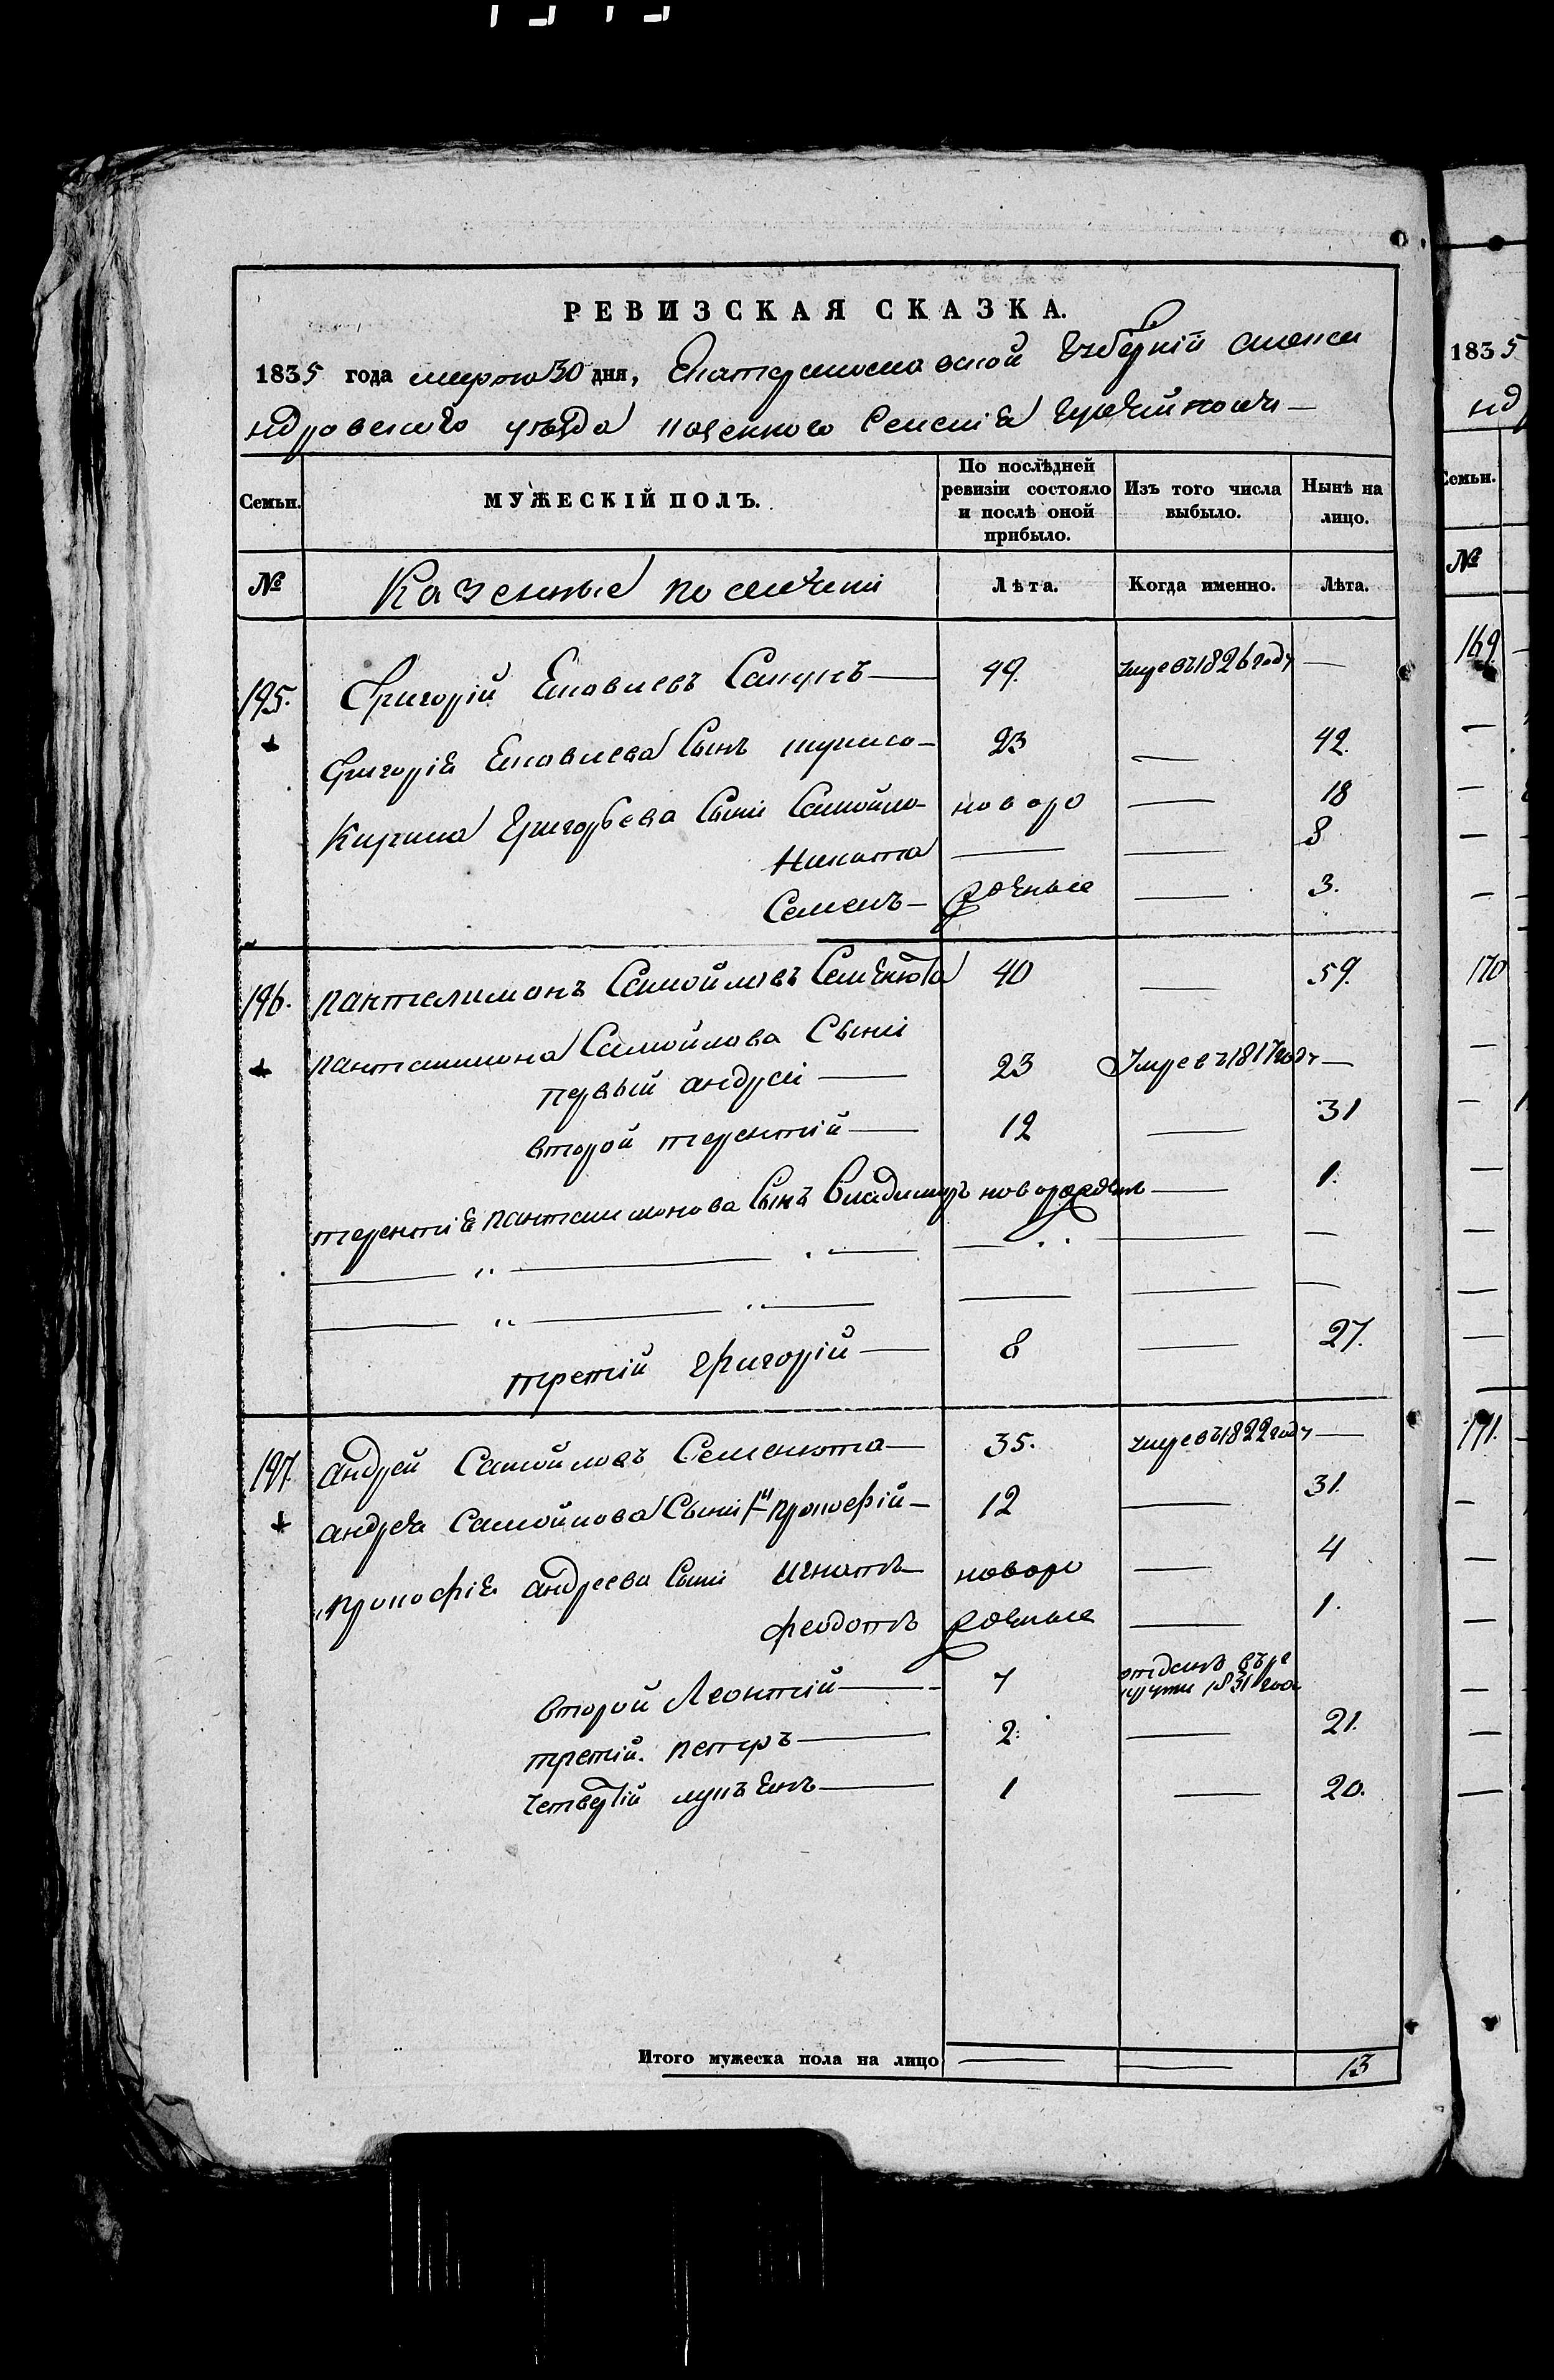 РЕВИЗСКАЯ СКАЗКА.
1835 года марта 30 дня, Екатеринославской Губерній Алекса
ндровского уезда Казенного Селенія
Семьи. МУЖЕСКІЙ ПОЛЪ. По послѣдней ревизіи состояло и послѣ оной прибыло. Изъ того числа выбыло. Нынѣ на лицо.
№ Казенные поселяни Лѣта. Когда именно. Лѣта.
195. Григорій Яковлевъ 49. умре въ 1826 году —
Григоріѣ Яковлева Сынъ — 23 — 42.
Григорьева Сыни Самойло — новоро — 18
Никита — — 8
Семенъ — жденые — 3.
196. Пантелимонъ Самойловъ Семѣнюта 40 — 59.
Пантелимона Самойлова Сыни
первый андрей — 23 Умре въ 1817 году —
второй терентій — 12 — 31
терентіѣ пантелимонова Сынъ Владимиръ новорожденъ — 1.
третій григорій — 8 — 27.
197. андрей Самойловъ Семенюта — 35. умре въ 1822 году —
андрѣа Самойлова Сыни 1й прокофій — 12 — 31.
прокофіѣ андреева Сыни Игнатъ — новоро — 4
феодотъ жденые — 1.
второй Леонтій — 7 отданъ въ ре
круты 1831 года
третій. петръ — 2. — 21.
четвертій лукъянъ — 1 — 20.
Итого мужеска пола на лицо — — 13
1835
нд
Семьи.
№
169.
170
171.